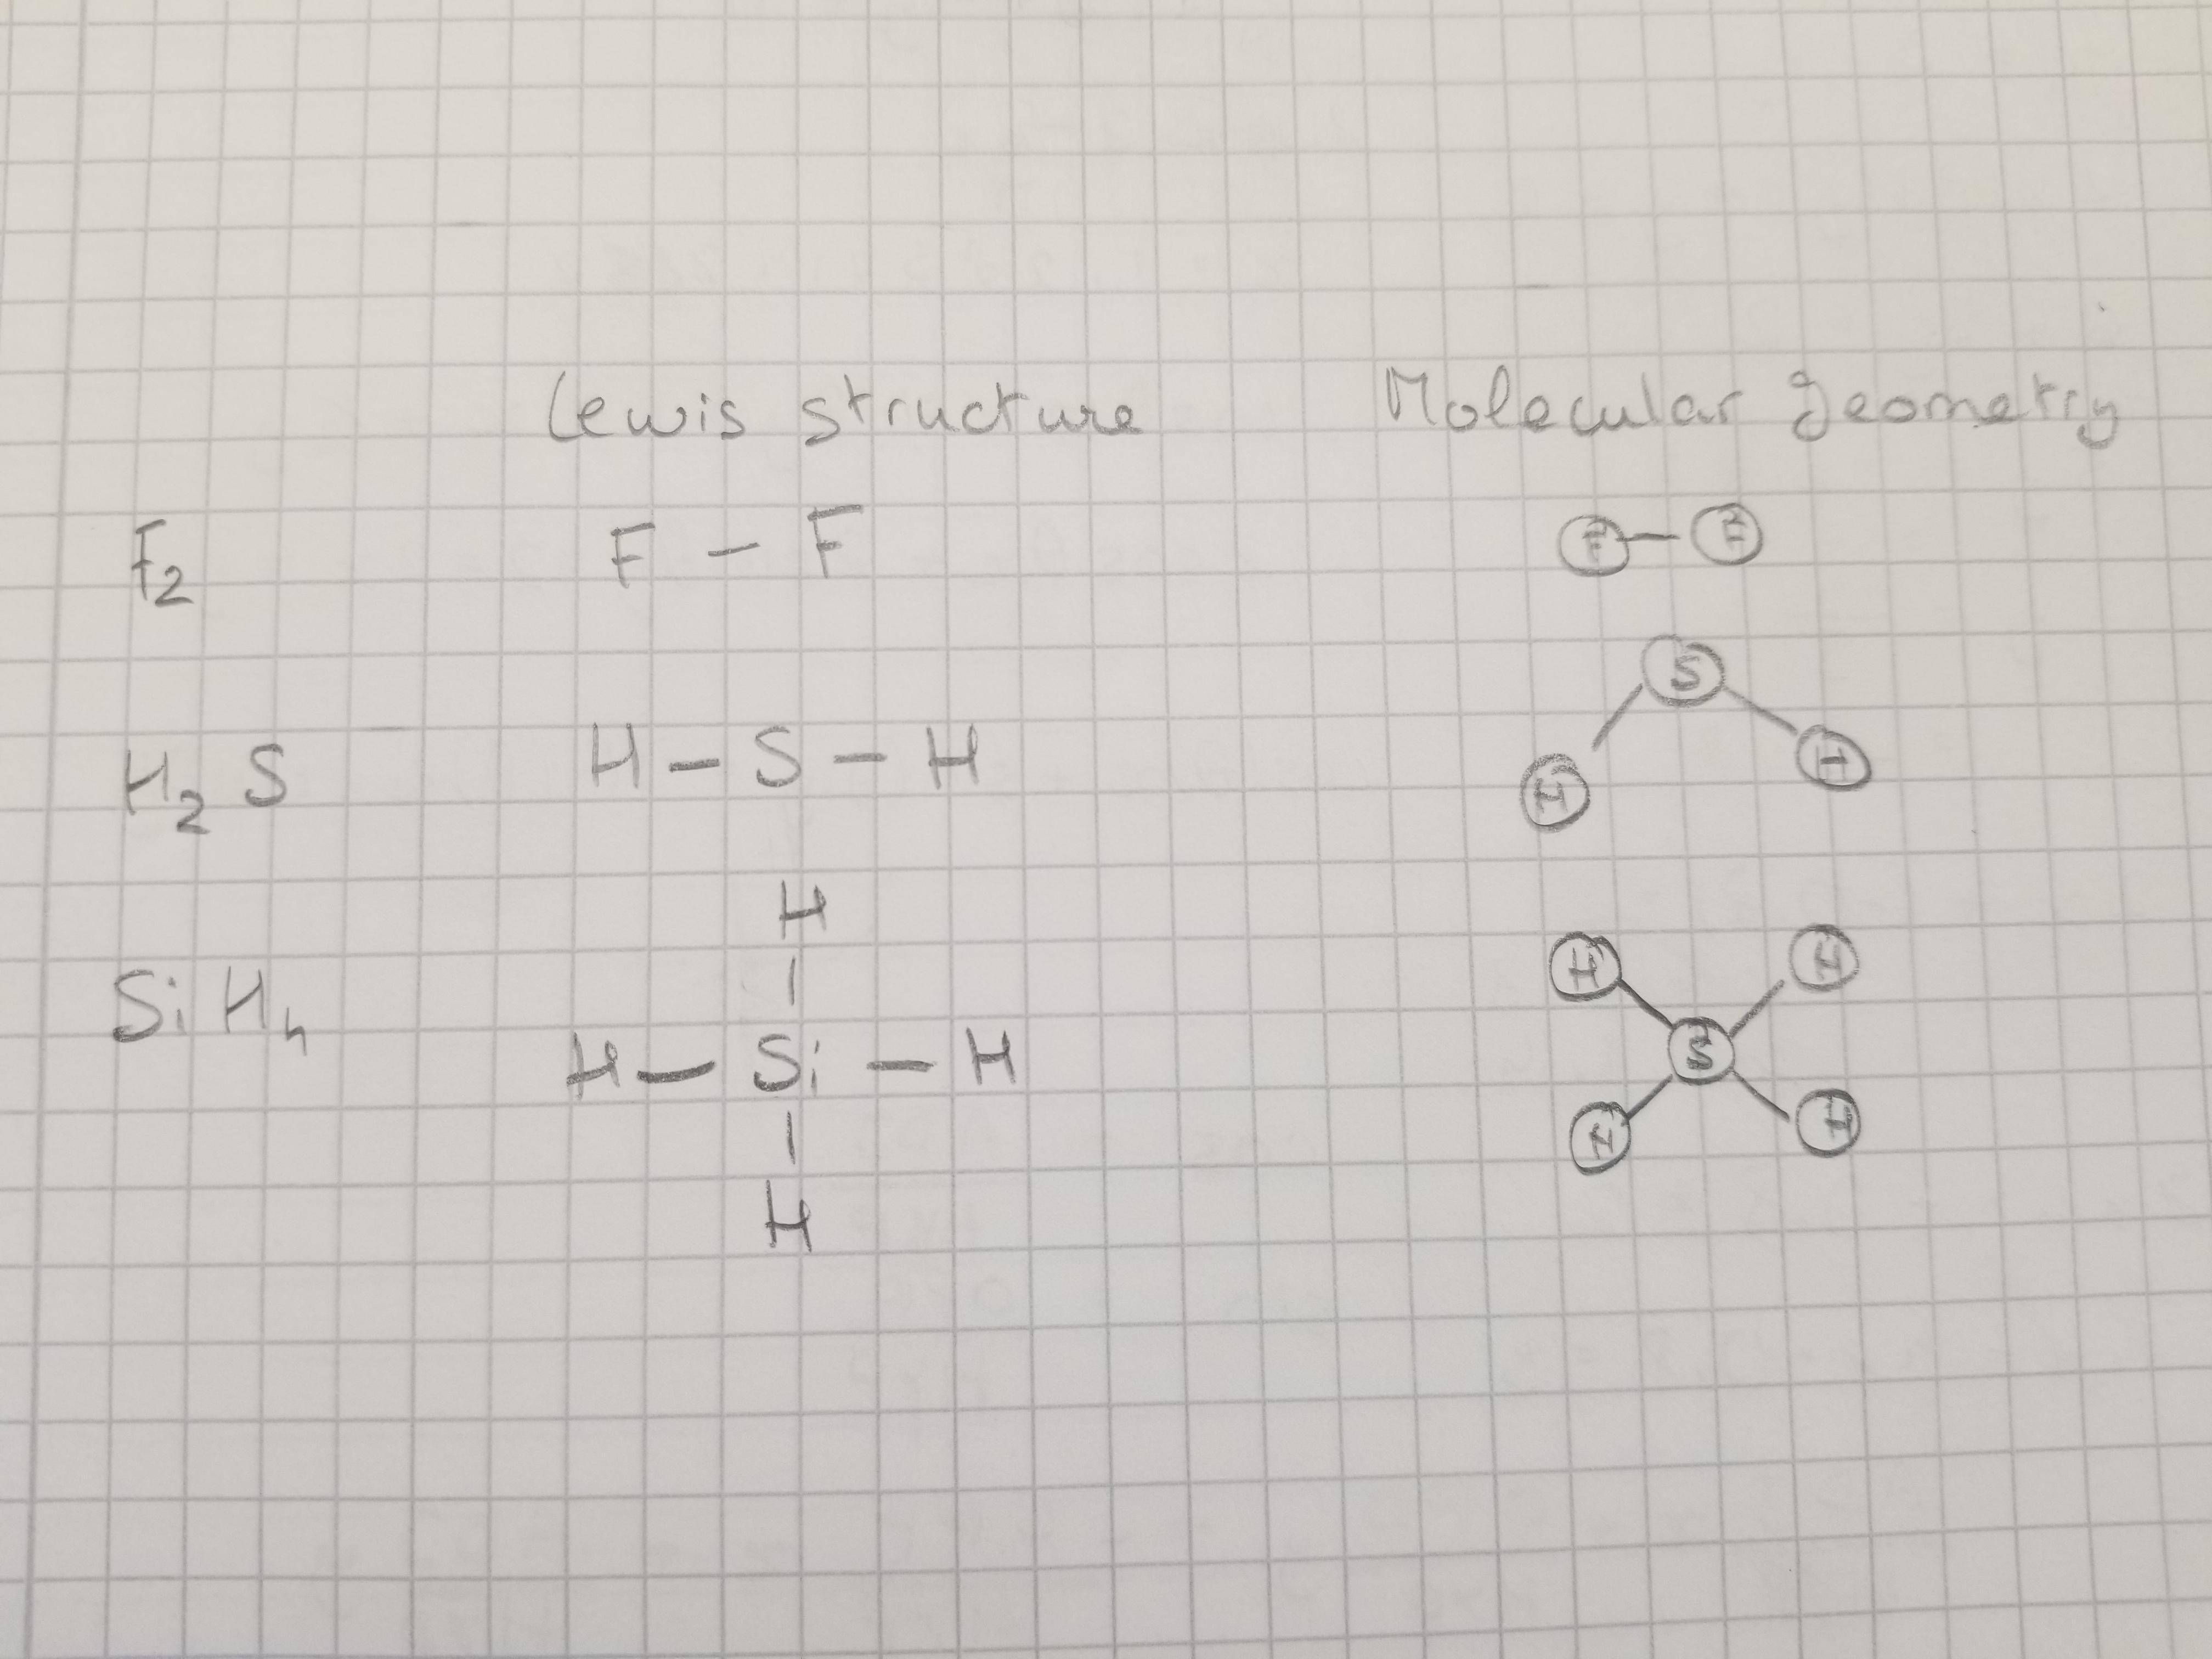 Lewis structure Molecular geometry
F2 F - F F - F
S
H2 S H - S - H H H
H
H H
Si H4
H - Si - H S
H H
H